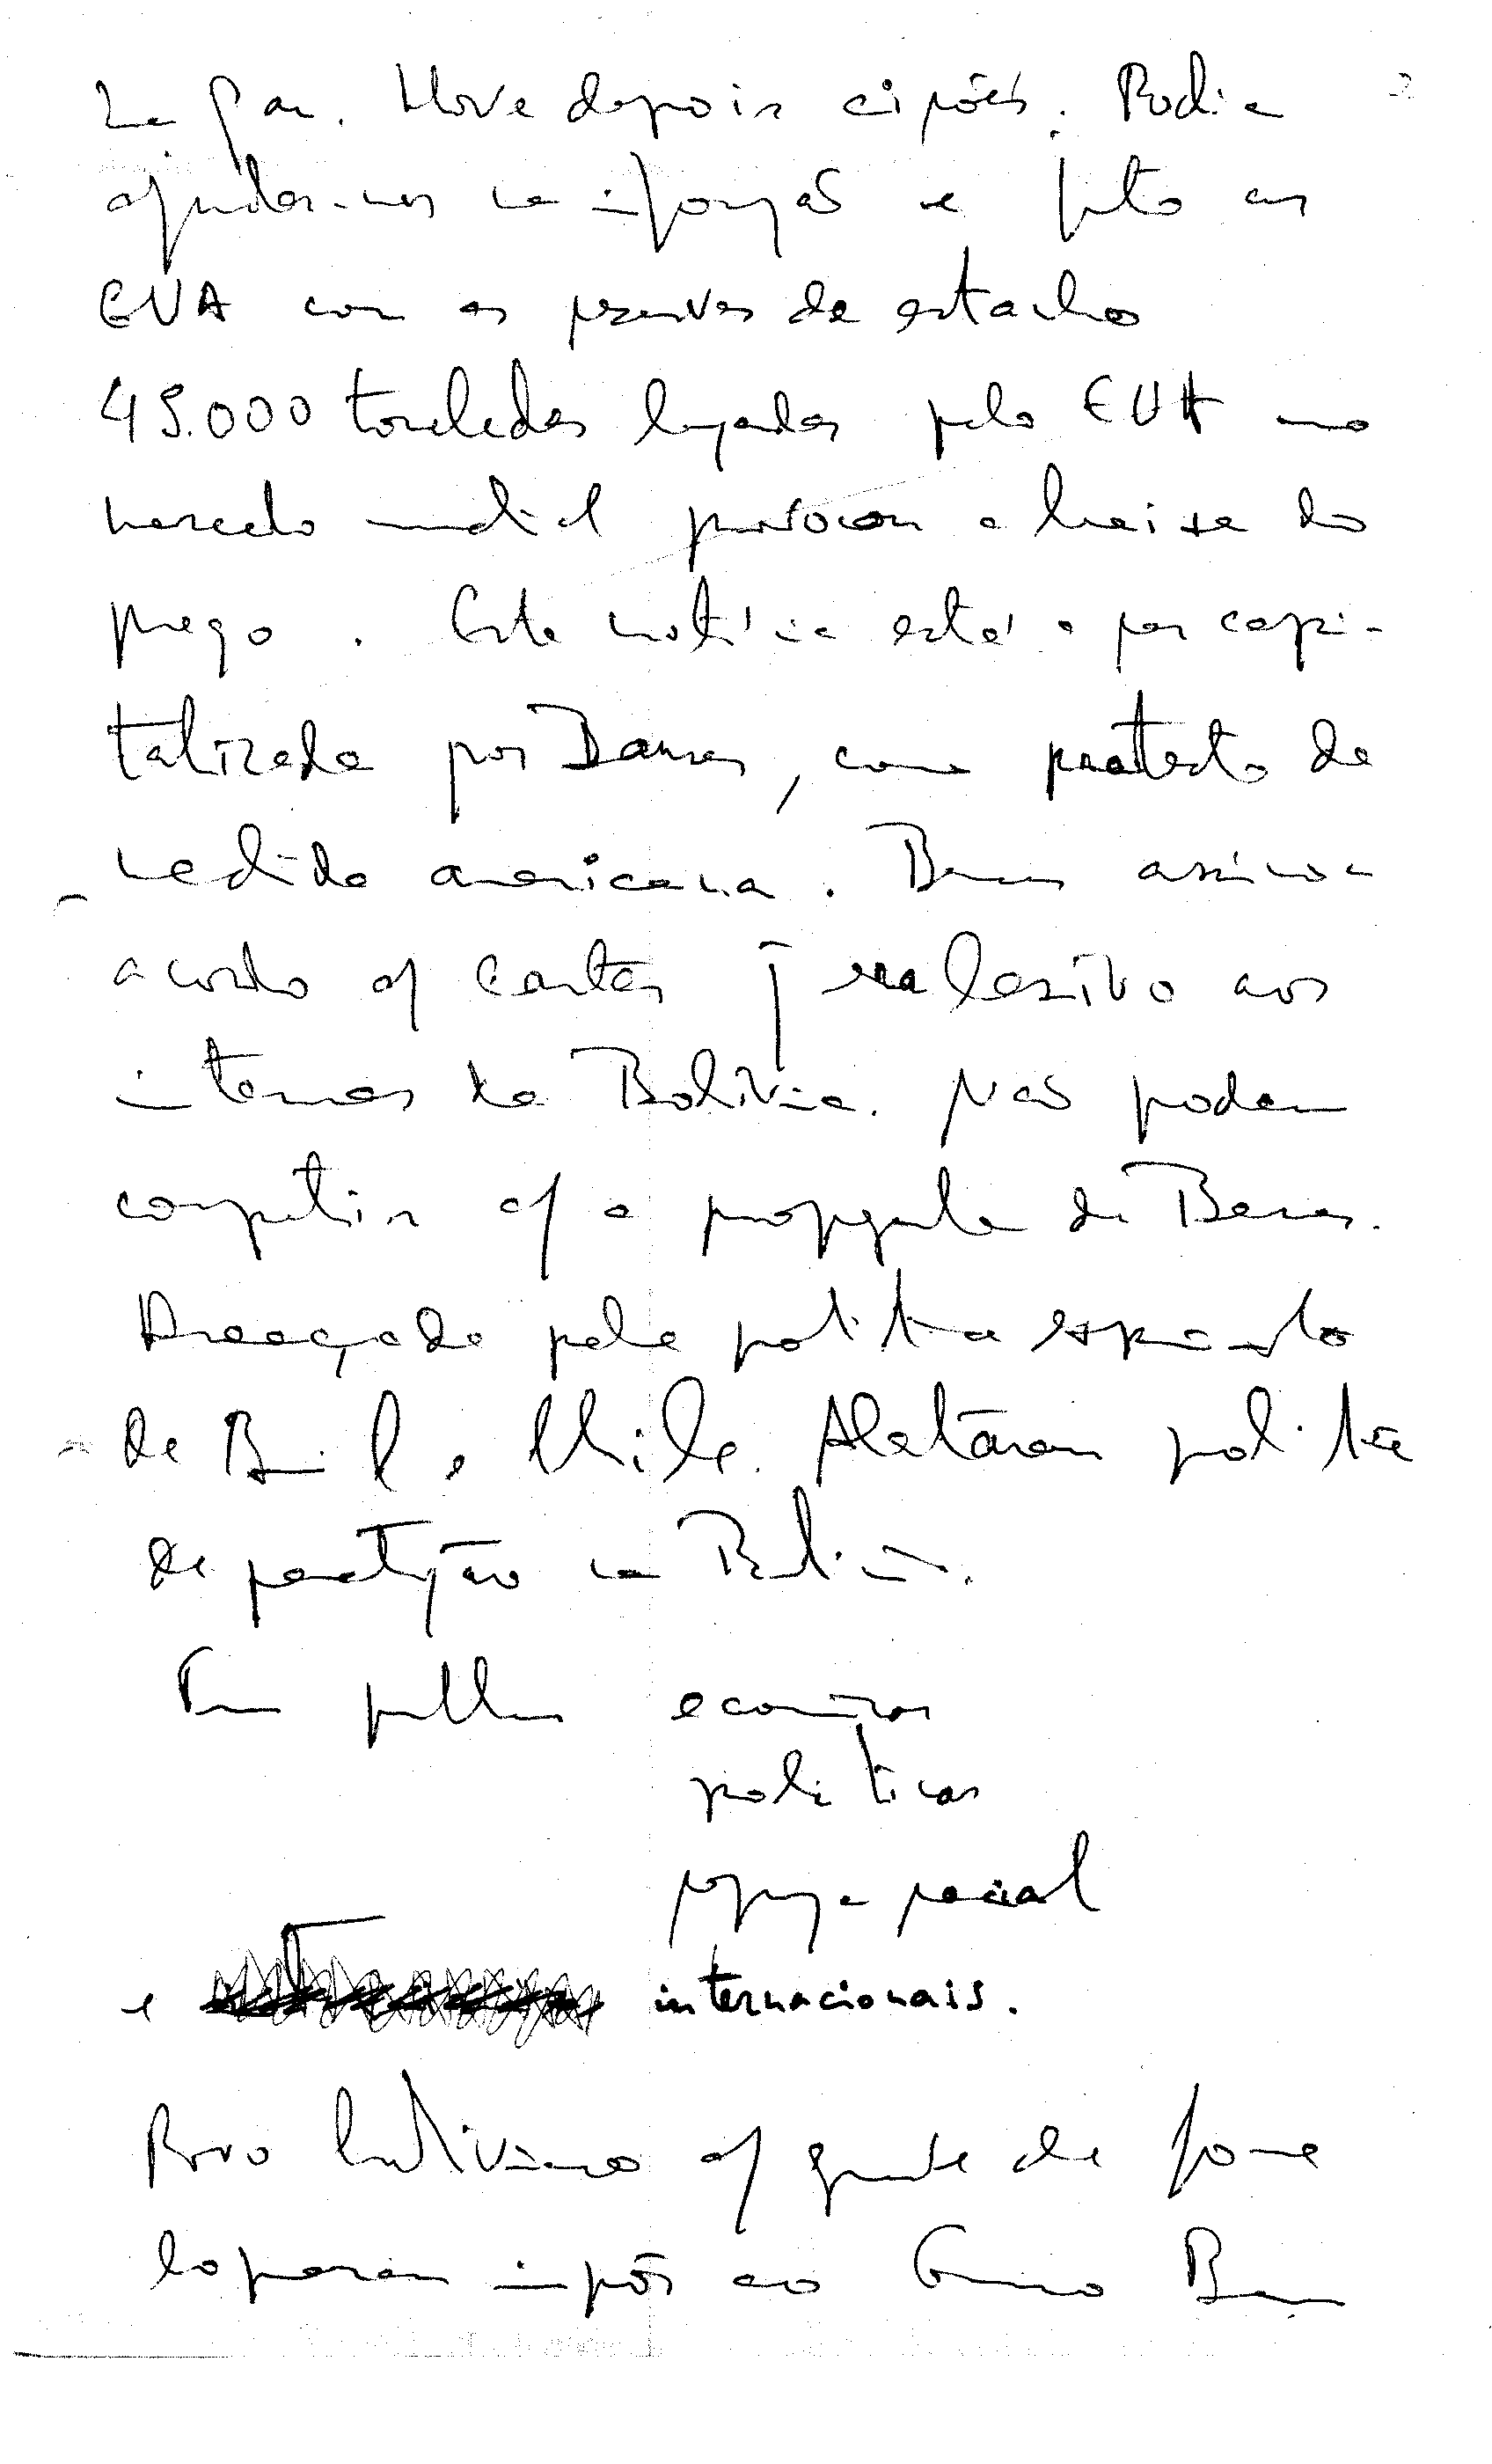 La Paz. Houve depois cipós. Podia
ajudar-nos na informação e junto aos
EUA com as reservas de estanho
45.000 toneladas lançadas pelo EUA no
mercado mundial provocou a baixa do
preço. Esta notícia está a ser capi-
talizada por Banzer, como protesto da
medida americana. Banzer assinou
acordo c/ Cartes q era lesivo aos
interesses da Bolívia. Não podem
competir c/ a propaganda de Banzer.
Ameaçada pela política expansionista
de Brasil e Chile. Aletaram política
de partição na Bolívia.
Tem problemas econômicos
políticos
segurança social
e internacionais.
Povo boliviano c/ greve de fome
lograram impôr ao Governo Banzer